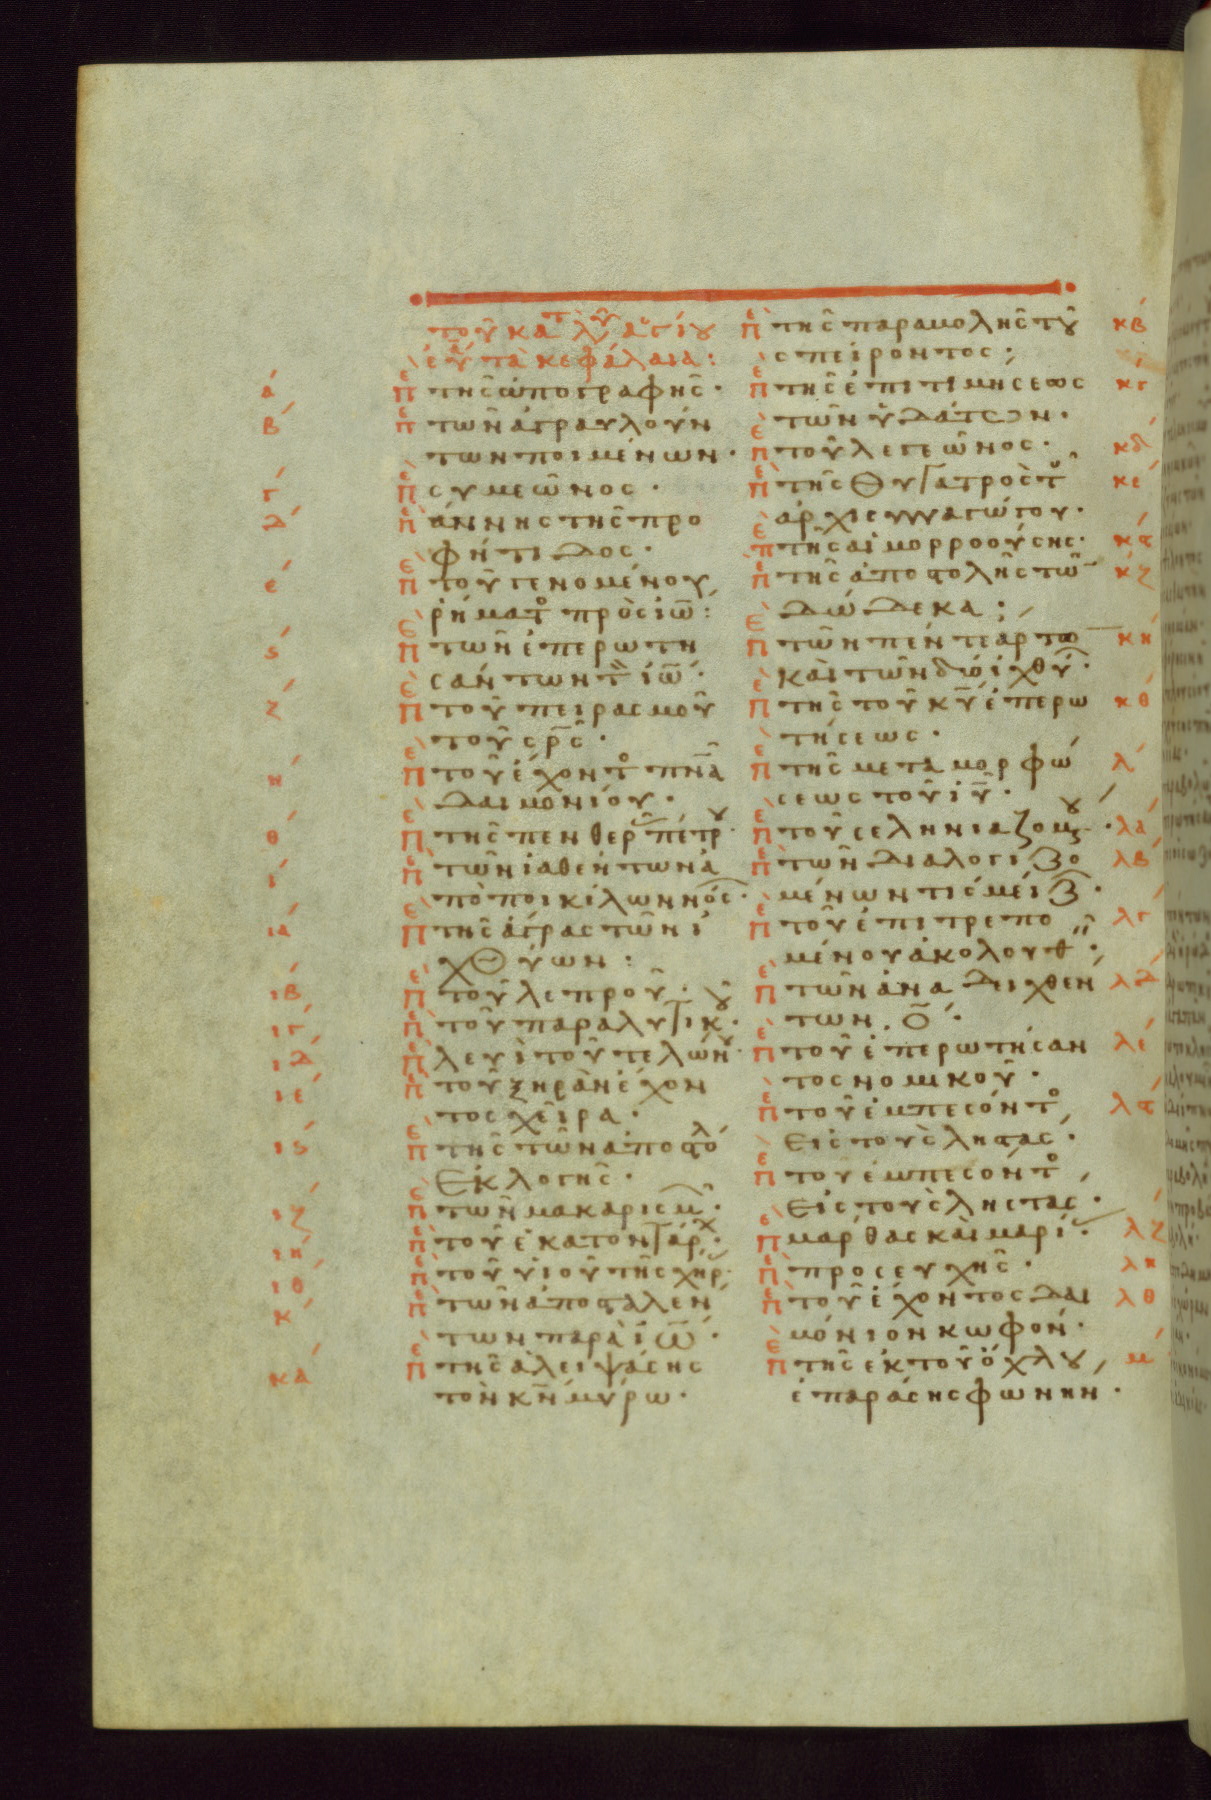 τοῦ κατ λυ ἁγίου
εὐα τὰ κεφάλαια:
ά πε τῆς ἀπογραφῆς·
β πε τῶν ἀγραυλούν
των ποιμένων·
γ πε συμεῶνος·
δ πε ἄννης τῆς προ
φήτιδος·
ε πε τοῦ γενομένου
ῥήματο πρὸς ἰω:
ς πε τῶν ἐπερωτη
σάντων τ ἰω·
ζ πε τοῦ πειρασμοῦ
τοῦ σρς·
η πε τοῦ ἔχοντο πνα
δαιμονίου·
θ πε τῆς πενθερ πέτρου·
ι πε τῶν ἰαθέντων ἀ
πὸ ποικίλων νός·
ια πε τῆς ἄγρας τῶν ἰ
χθύων:
ιβ πε τοῦ λεπροῦ·
ιγ πε τοῦ παραλυτικου·
ιδ πε λευὶ τοῦ τελών·
ιε πε τοῦ ξηρὰν ἔχον
τος χεῖρα·
ις πε τῆς τῶν ἀποστολ
ἐκλογῆς·
ιζ πε τῶν μακαρισμ·
ιη πε τοῦ ἑκατοντάρχ·
ιθ πε τοῦ υἱοῦ τῆς χήρ·
κ πε τῶν ἀποσταλέν
των παρὰ ἰω·
κα πε τῆς ἀλειψάσης
τὸν κν μύρω·
πε τῆς παραβολῆς τοῦ κβ
σπείροντος;
πε τῆς ἐπιτιμήσεως κγ
τῶν ὑδάτων·
πε τοῦ λεγεῶνος· κδ
πε τῆς θυγατρὸς τοῦ κε
ἀρχισυναγώγου·
πε τῆς αἱμορροούσης· κς
πε τῆς ἀποστολῆς τῶ κζ
δώδεκα;
πε τῶν πέντε ἄρτω κη
καὶ τῶν δύο ἰχθύ·
πε τῆς τοῦ κυ ἐπερω κθ
τήσεως·
πε τῆς μεταμορφώ λ
σεως τοῦ ιυ·
πε τοῦ σεληνιαζομου· λα
πε τῶν διαλογιζο λβ
μένων τίς μείζ·
πε τοῦ ἐπιτρεπο λγ
μένου ἀκολουθ·
πε τῶν ἀναδειχθέν λδ
των ο·
πε τοῦ ἐπερωτήσαν λε
τος νομικοῦ·
πε τοῦ ἐμπεσόντο λς
εἰς τοὺς ληστάς·
πε τοῦ ἐμπεσόντο
εἰς τοὺς ληστάς·
πε μάρθας καὶ μαρί· λζ
πε προσευχῆς· λη
πε τοῦ ἔχοντος δαι λθ
μόνιον κωφόν·
πε τῆς ἐκ τοῦ ὄχλου μ
ἐπαράσης φωνήν·